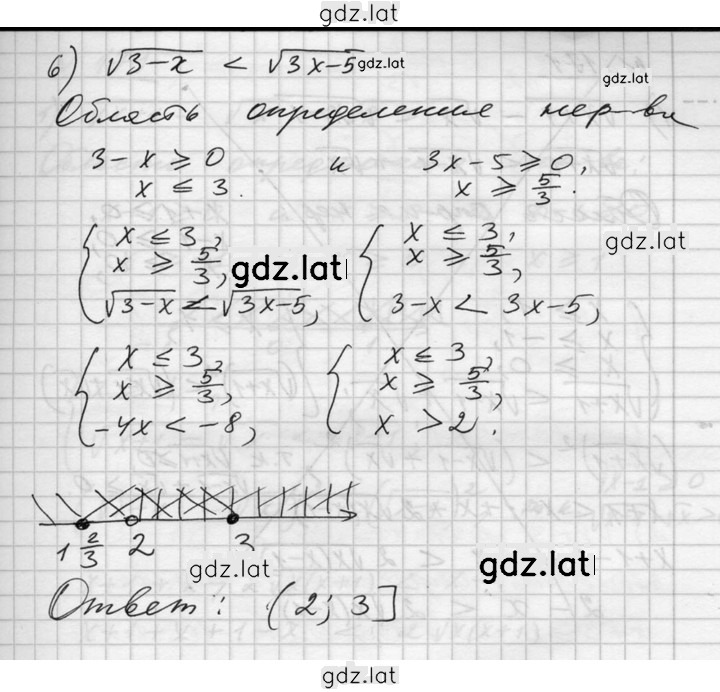 gdz.lat
б) √3-x < √3x-5 gdz.lat
gdz.lat
Область определение нер-ва
3-x ≥ 0 и 3x-5 ≥ 0,
x ≤ 3. x ≥ 5/3.
gdz.lat
{ x ≤ 3, x ≥ 5/3, √3-x < √3x-5,
gdz.lat
{ x ≤ 3, x ≥ 5/3, 3-x < 3x-5,
{ x ≤ 3, x ≥ 5/3, -4x < -8,
{ x ≤ 3, x ≥ 5/3, x > 2.
1 2/3 2 3
gdz.lat
gdz.lat
Ответ: (2; 3]
gdz.lat